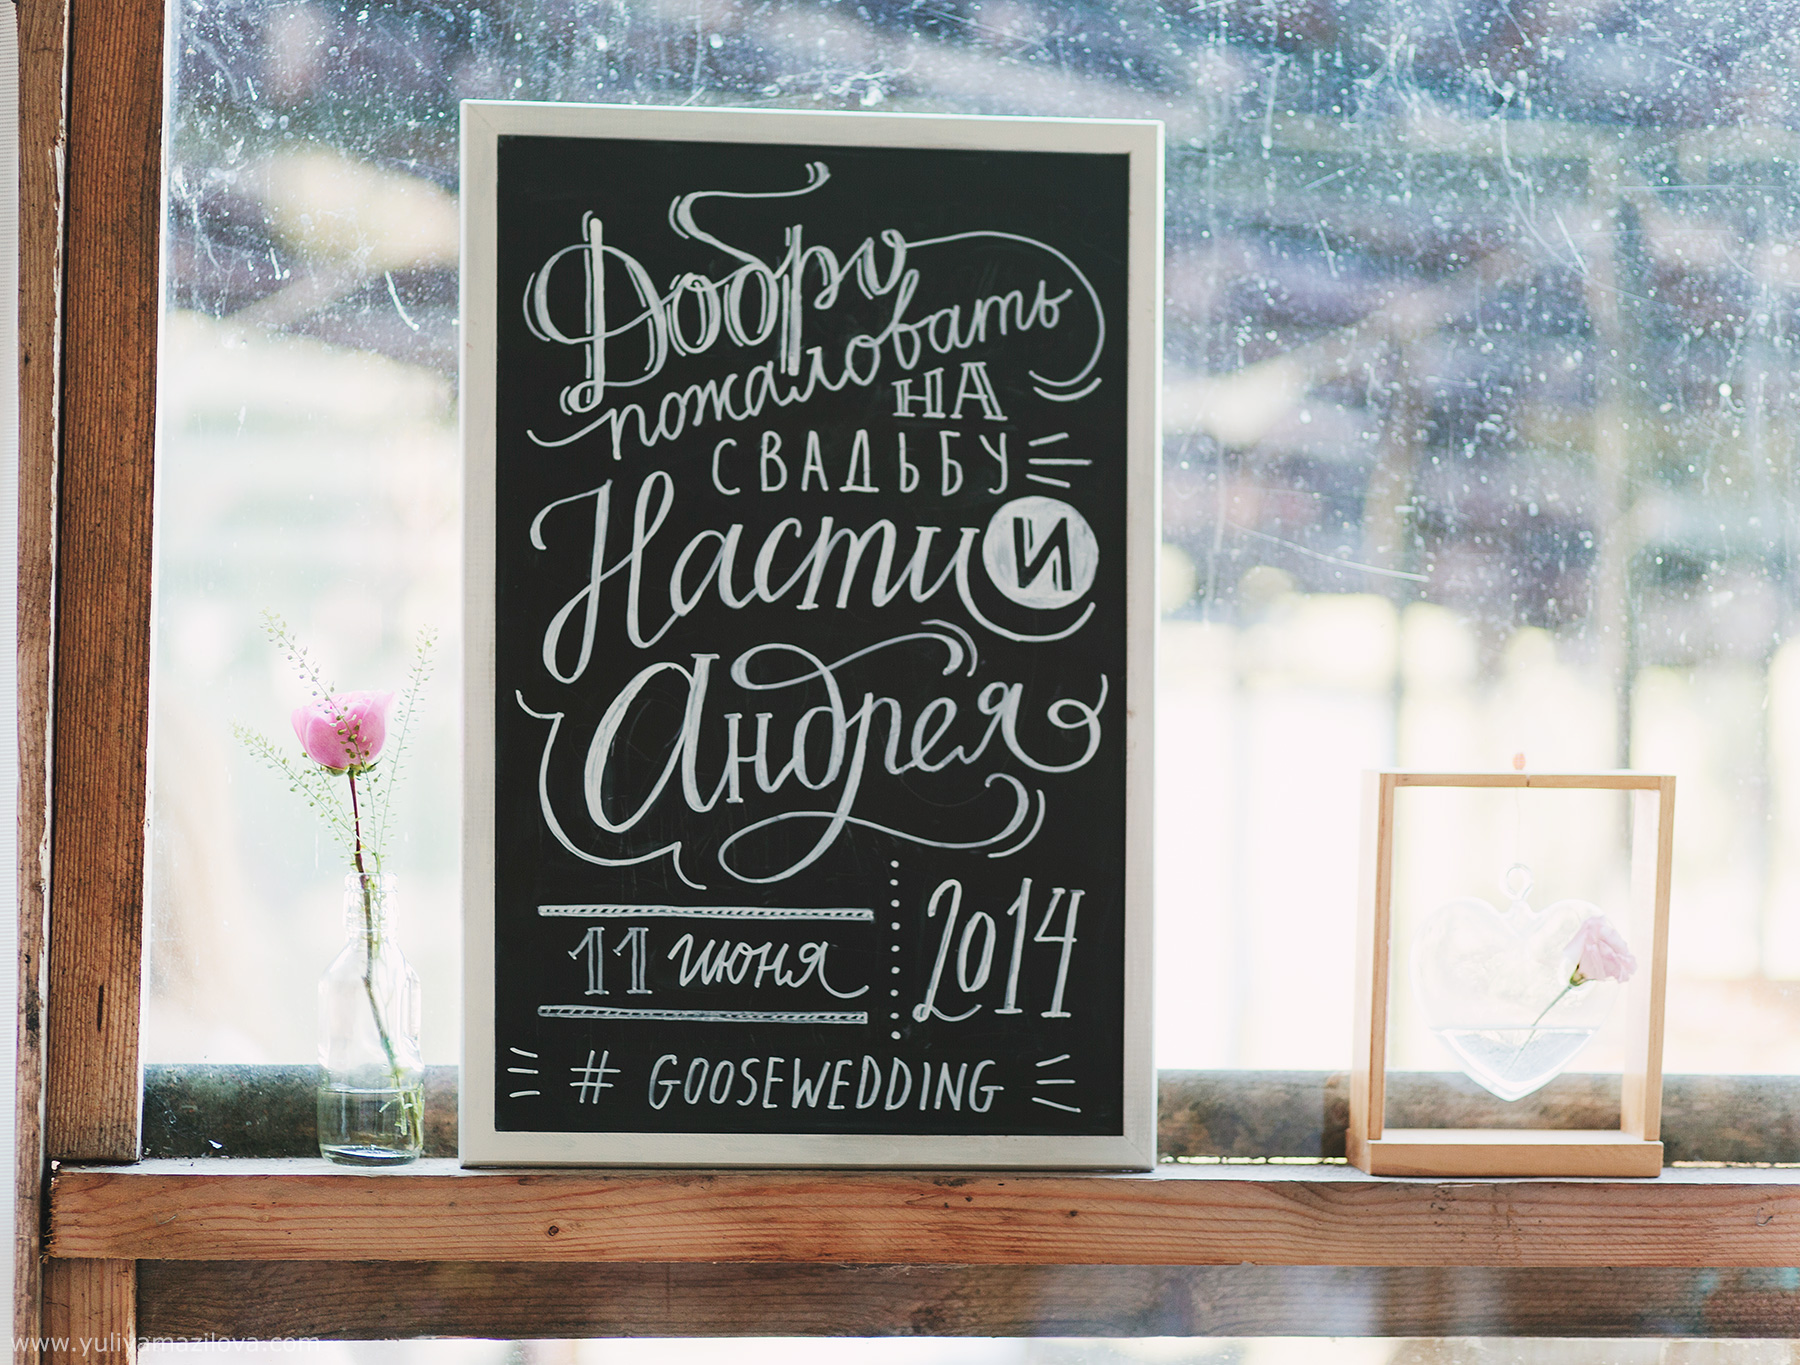 Добро
пожаловать
НА
СВАДЬБУ
Насти и
Андрея
11 июня 2014
# GOOSEWEDDING
www.yuliyamazilova.com